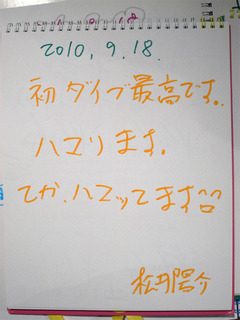 2010.9.18.
初ダイブ最高です。
ハマります。
てか、ハマッてます^^